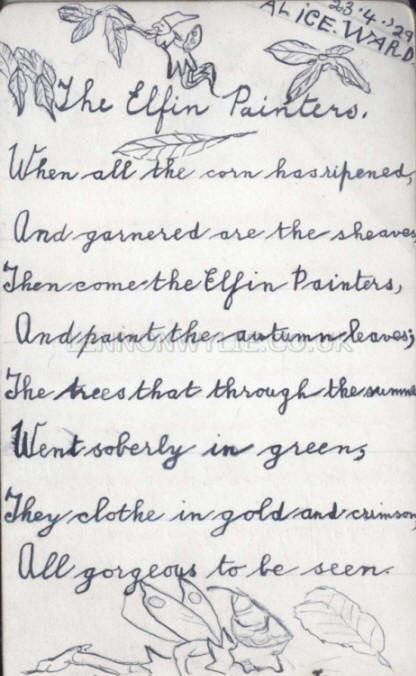 23.4.'29
ALICE. WARD
The Elfin Painters.
When all the corn has ripened,
And garnered are the sheaves
Then come the Elfin Painters,
And paint the autumn leaves;
LENNONWYLIE.CO.UK
The trees that through the summe
Went soberly in green,
They clothe in gold and crimson,
All gorgeous to be seen.